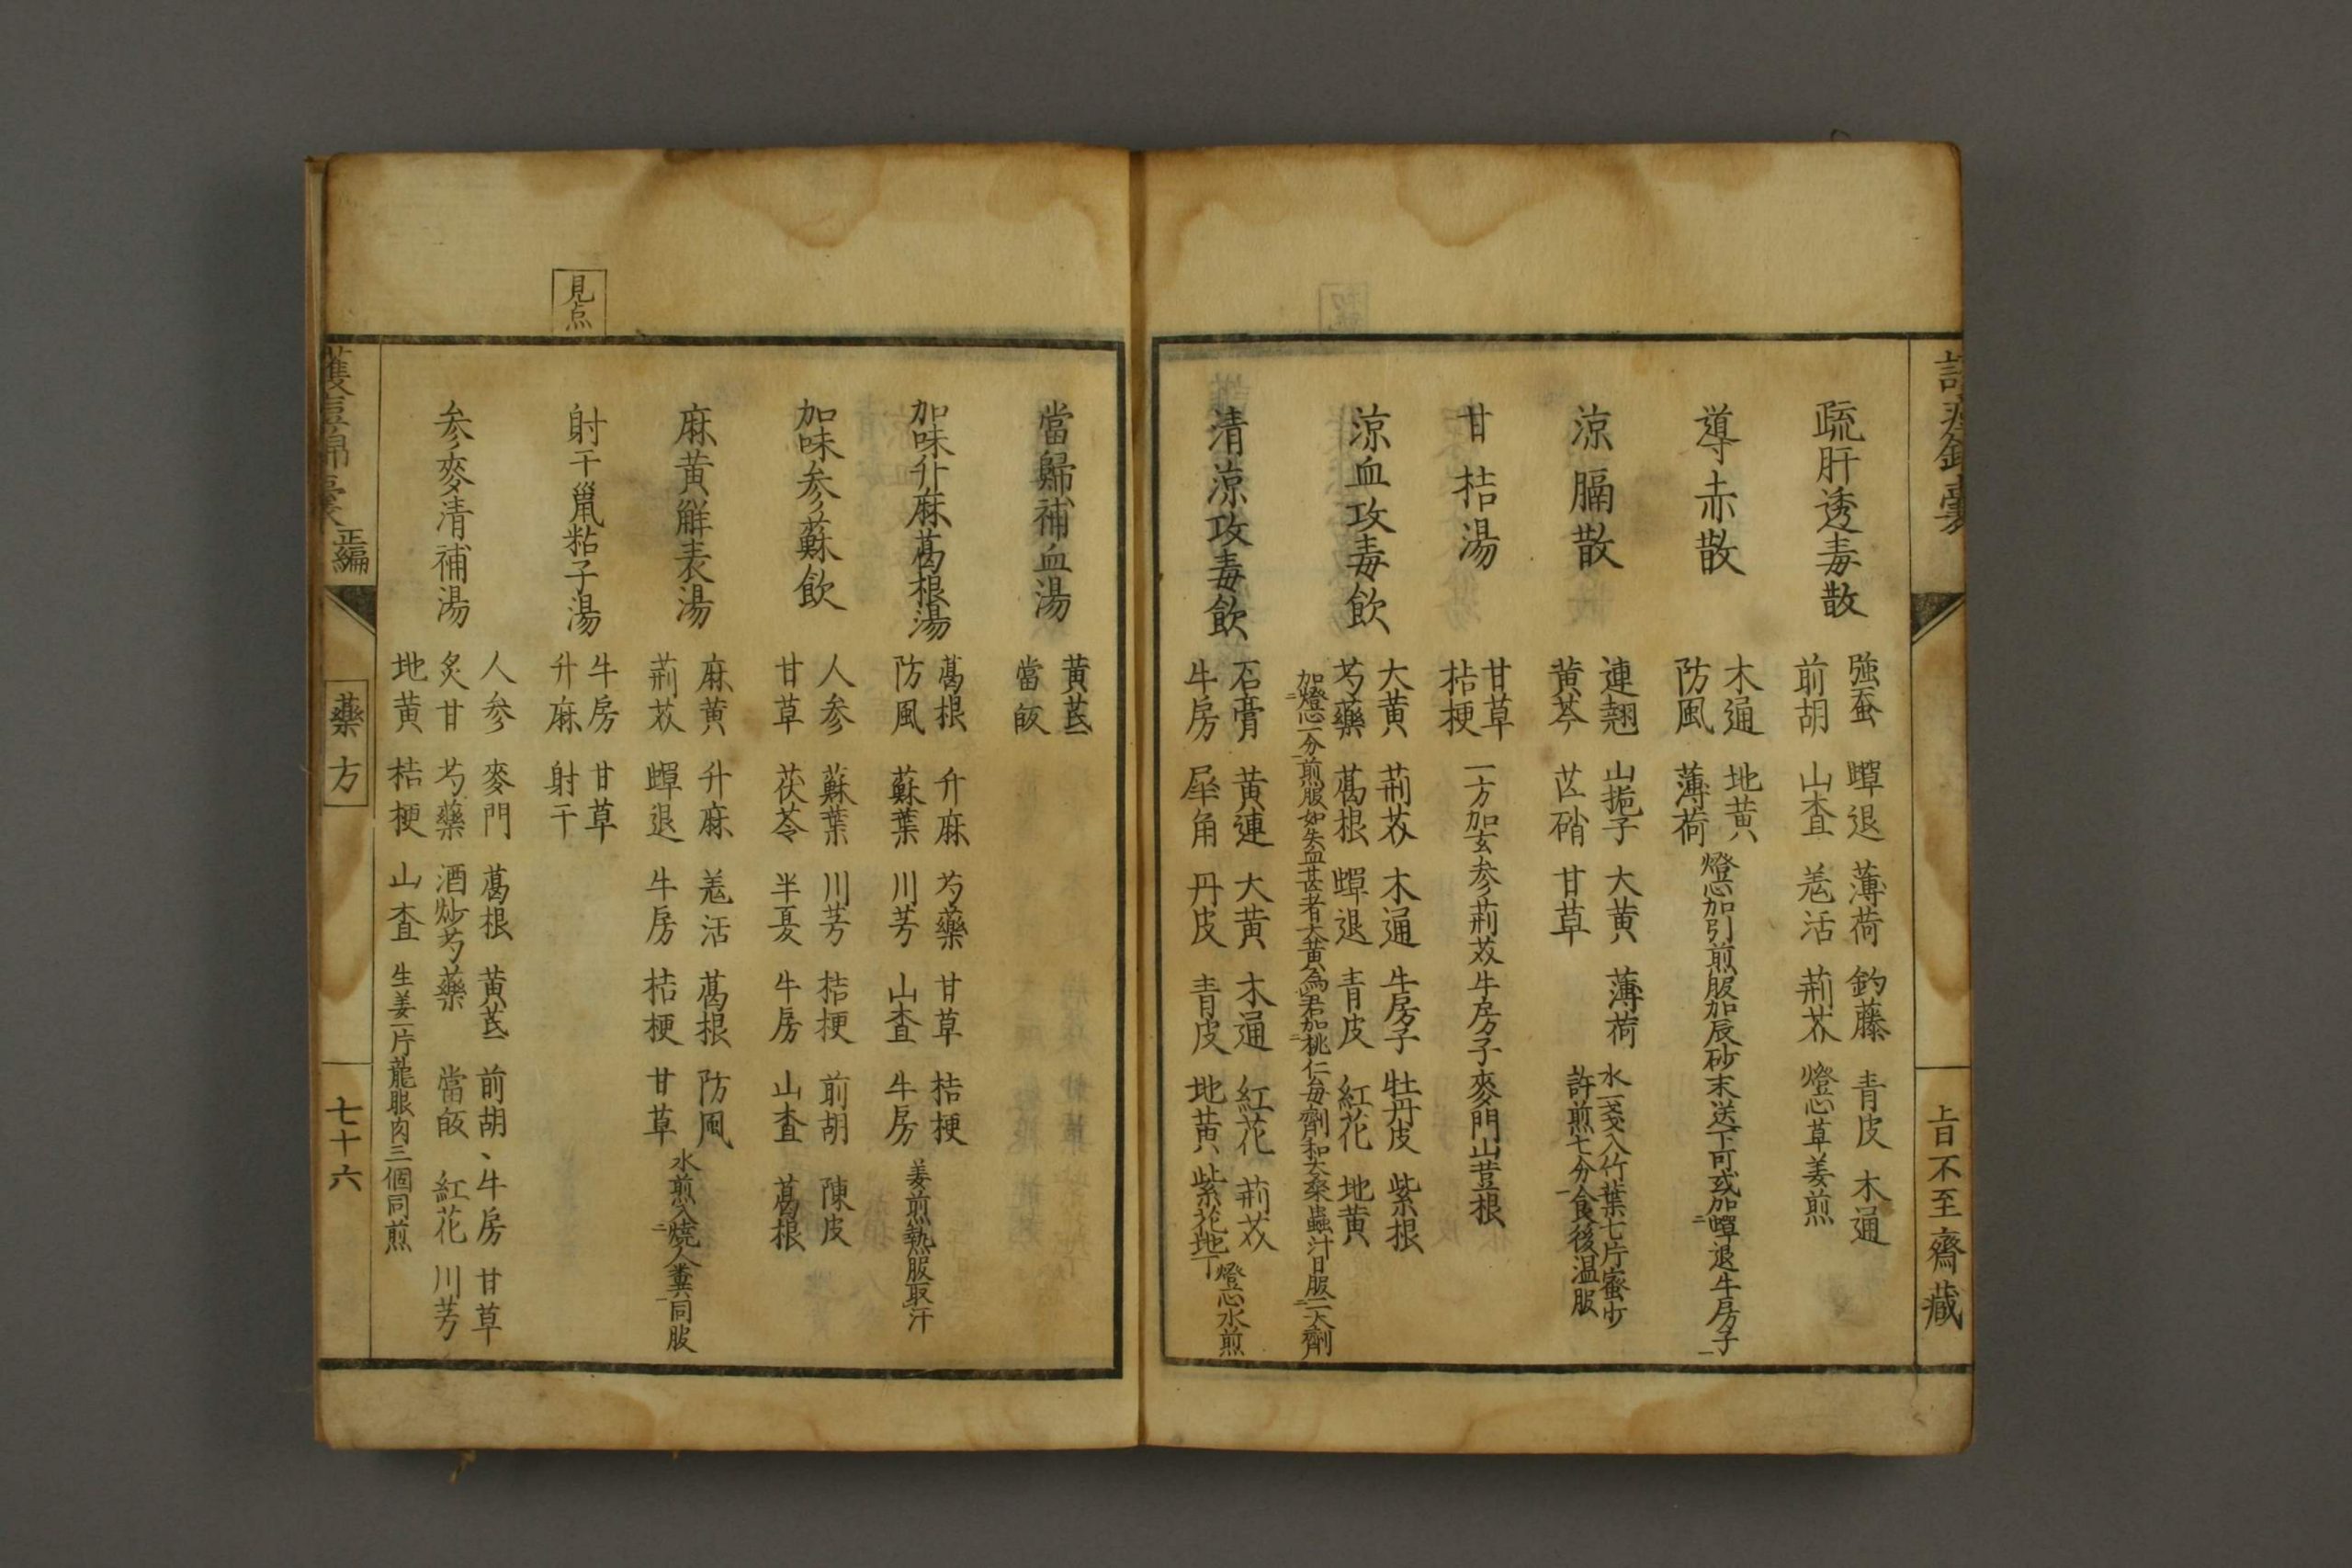 疏肝透毒散
強蚕 蟬退 薄荷 釣藤 青皮 木通
前胡 山査 羗活 荊芥 燈心草姜煎
導赤散
木通 地黄
防風 薄荷
燈心加引煎服加辰砂末送下可或加蟬退牛房子
涼膈散
連翹 山梔子 大黄 薄荷
黄芩 芒硝 甘草
水一盞入竹葉七片蜜少
許煎七分食後温服
甘桔湯
甘草
桔梗
一方加玄参荊芥牛房子麥門山荳根
涼血攻毒飲
大黄 荊芥 木通 牛房子 牡丹皮 紫根
芍藥 葛根 蟬退 青皮 紅花 地黄
加燈心一分煎服如失血甚者大黄為君加桃仁每劑和大桒蟲汁日服二大劑
清涼攻毒飲
石膏 黄連 大黄 木通 紅花 荊芥
牛房 犀角 丹皮 青皮 地黄 紫花地丁
燈心水煎
上日不至齋藏
當歸補血湯
黄芪
當皈
加味升麻葛根湯
葛根 升麻 芍藥 甘草 桔梗
防風 蘇葉 川芎 山査 牛房
姜煎熱服取汗
加味参蘇飲
人参 蘇葉 川芎 桔梗 前胡 陳皮
甘草 茯苓 半夏 牛房 山査 葛根
麻黄解表湯
麻黄 升麻 羗活 葛根 防風
荊芥 蟬退 牛房 桔梗 甘草
水煎入燒人糞同服
見点
射干鼠粘子湯
牛房 甘草
升麻 射干
参麥清補湯
人参 麥門 葛根 黄芪 前胡、牛房 甘草
炙甘 芍藥 酒炒芍藥 當皈 紅花 川芎
地黄 桔梗 山査 生姜一片龍眼肉三個同煎
正編
藥方
七十六